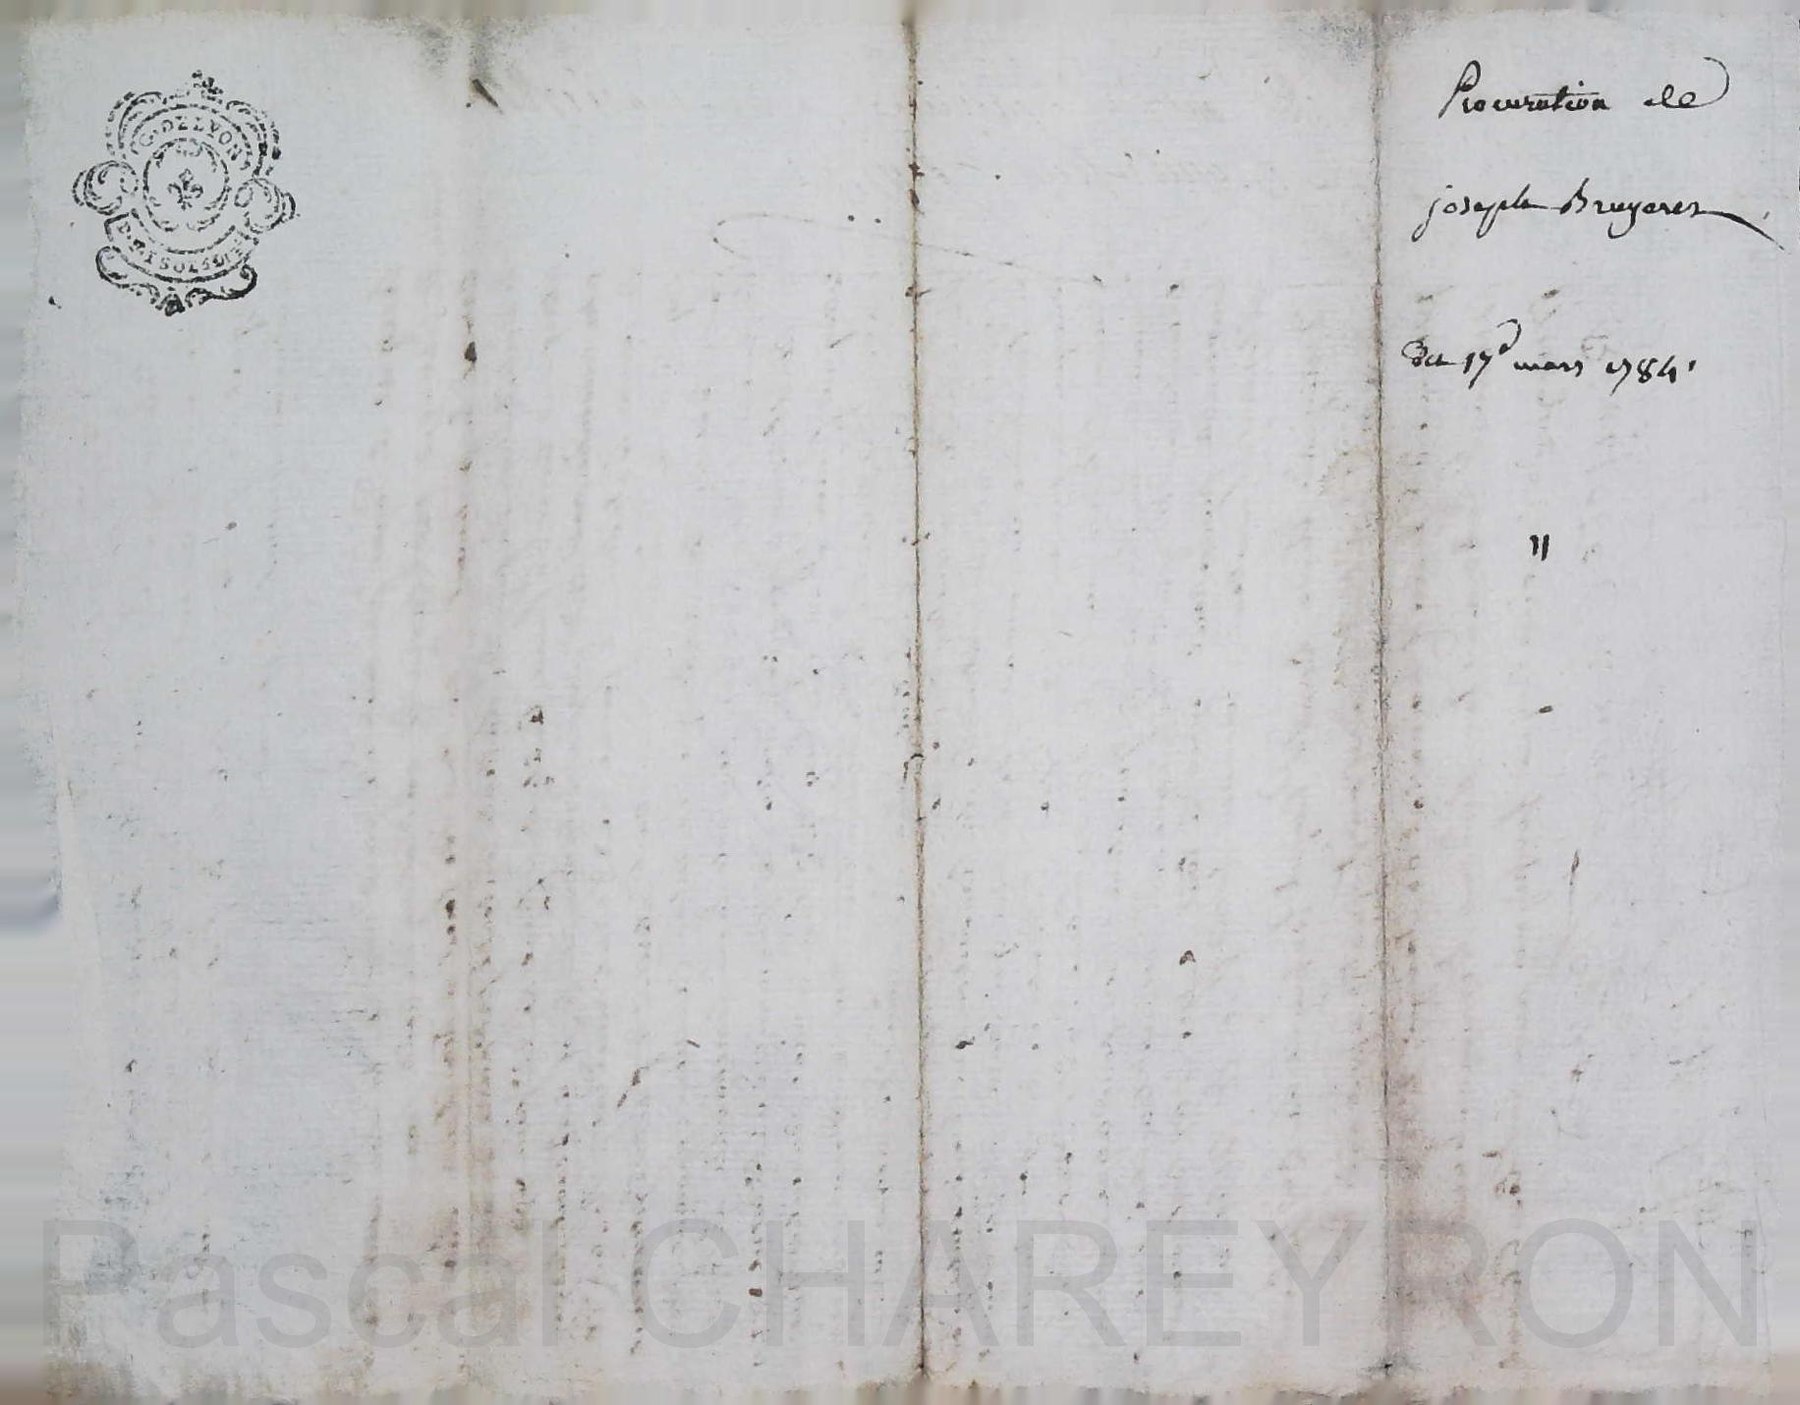 G. DE LYON
Procuration de
joseph Bruyeres
Du 17e mars 1784.
11
Pascal CHAREYRON